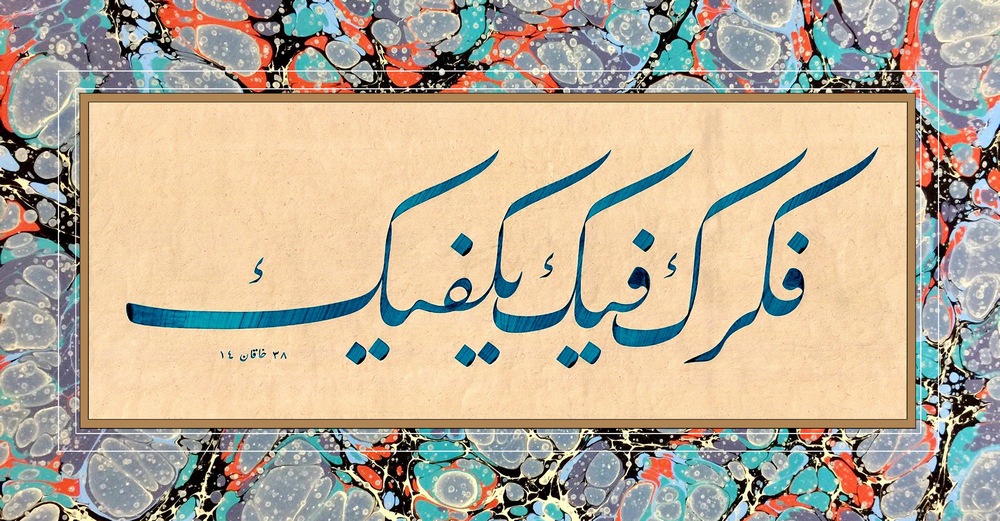 فكرك فيك يكفيك
٣٨ خاقان ١٤